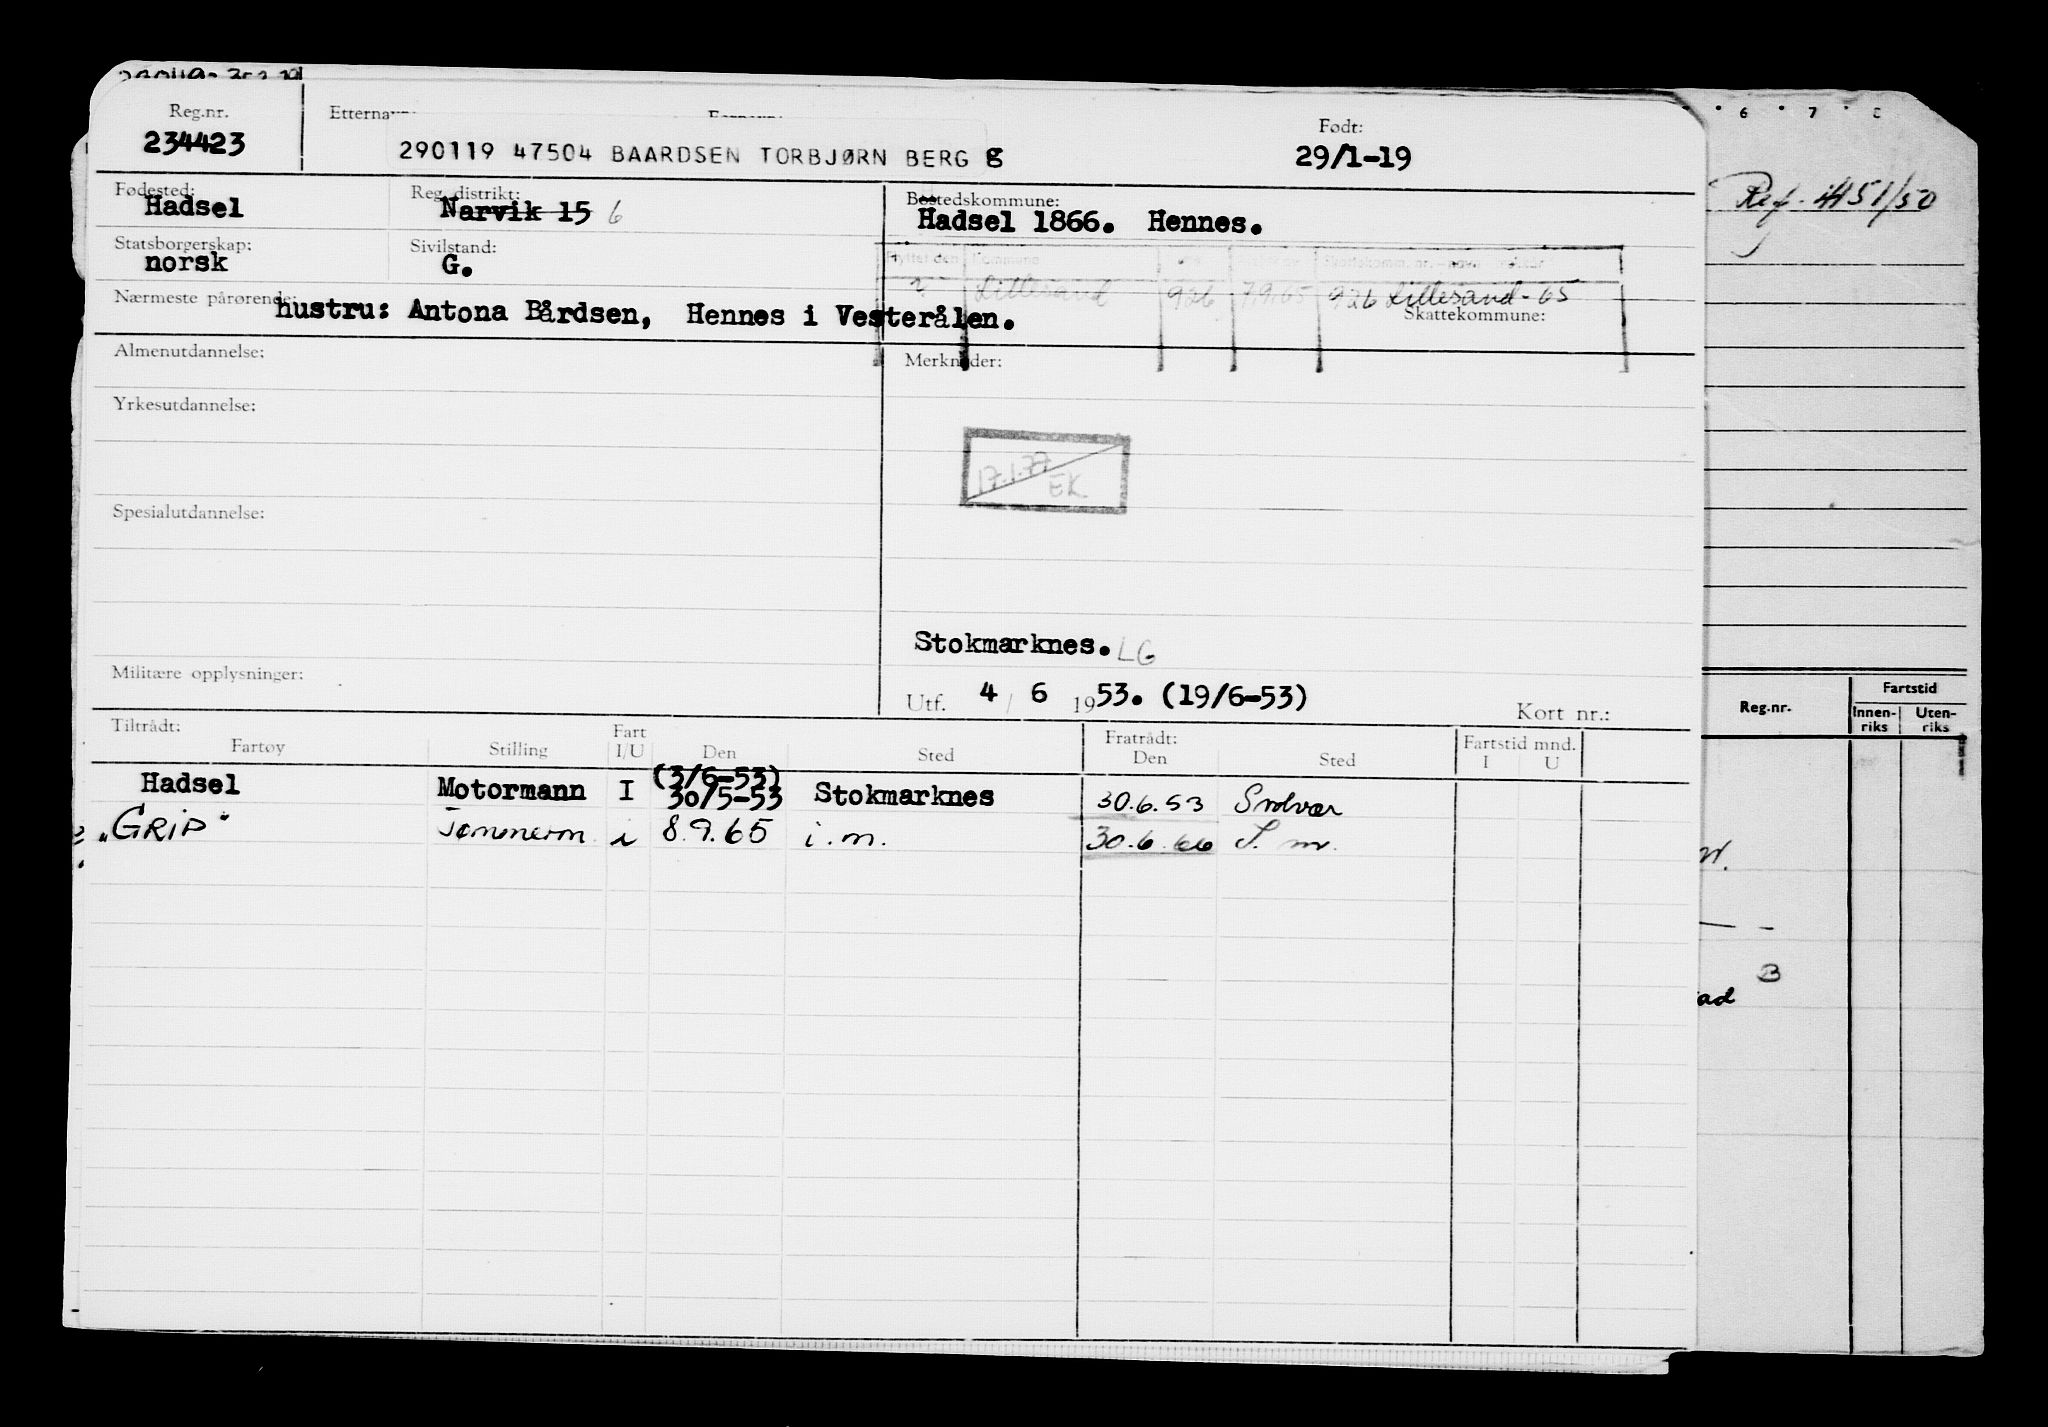 Reg.nr. Etternavn: Fornavn: Født:
234423 290119 47504 BAARDSEN TORBJØRN BERG g 29/1-19
Fødested: Reg. distrikt: Bostedskommune:
Hadsel Narvik 15 6 Hadsel 1866. Hennes.
Statsborgerskap: Sivilstand:
norsk G.
Flyttet den Kommune Skattekomm. nr. - navn
Lillesand 926 7.9.65 926 Lillesand - 65
Nærmeste pårørende: Skattekommune:
hustru: Antona Bårdsen, Hennes i Vesterålen.
Almenutdannelse: Merknader:
Yrkesutdannelse:
17.1.77
EK
Spesialutdannelse:
Stokmarknes. LG
Militære opplysninger:
Utf. 4 / 6 1953. (19/6-53) Kort nr.:
Tiltrådt: Fratrådt:
Fartøy Stilling Fart I/U Den Sted Den Sted Fartstid mnd. I U
(3/6-53)
Hadsel Motormann I 30/5-53 Stokmarknes 30.6.53 Svolvær
"GRIP" Tømmerm i 8.9.65 i.m. 30.6.66 S. m.
6 7 8
Ref. 4451/50
Reg.nr. Fartstid
Innen-riks Uten-riks
B
ad